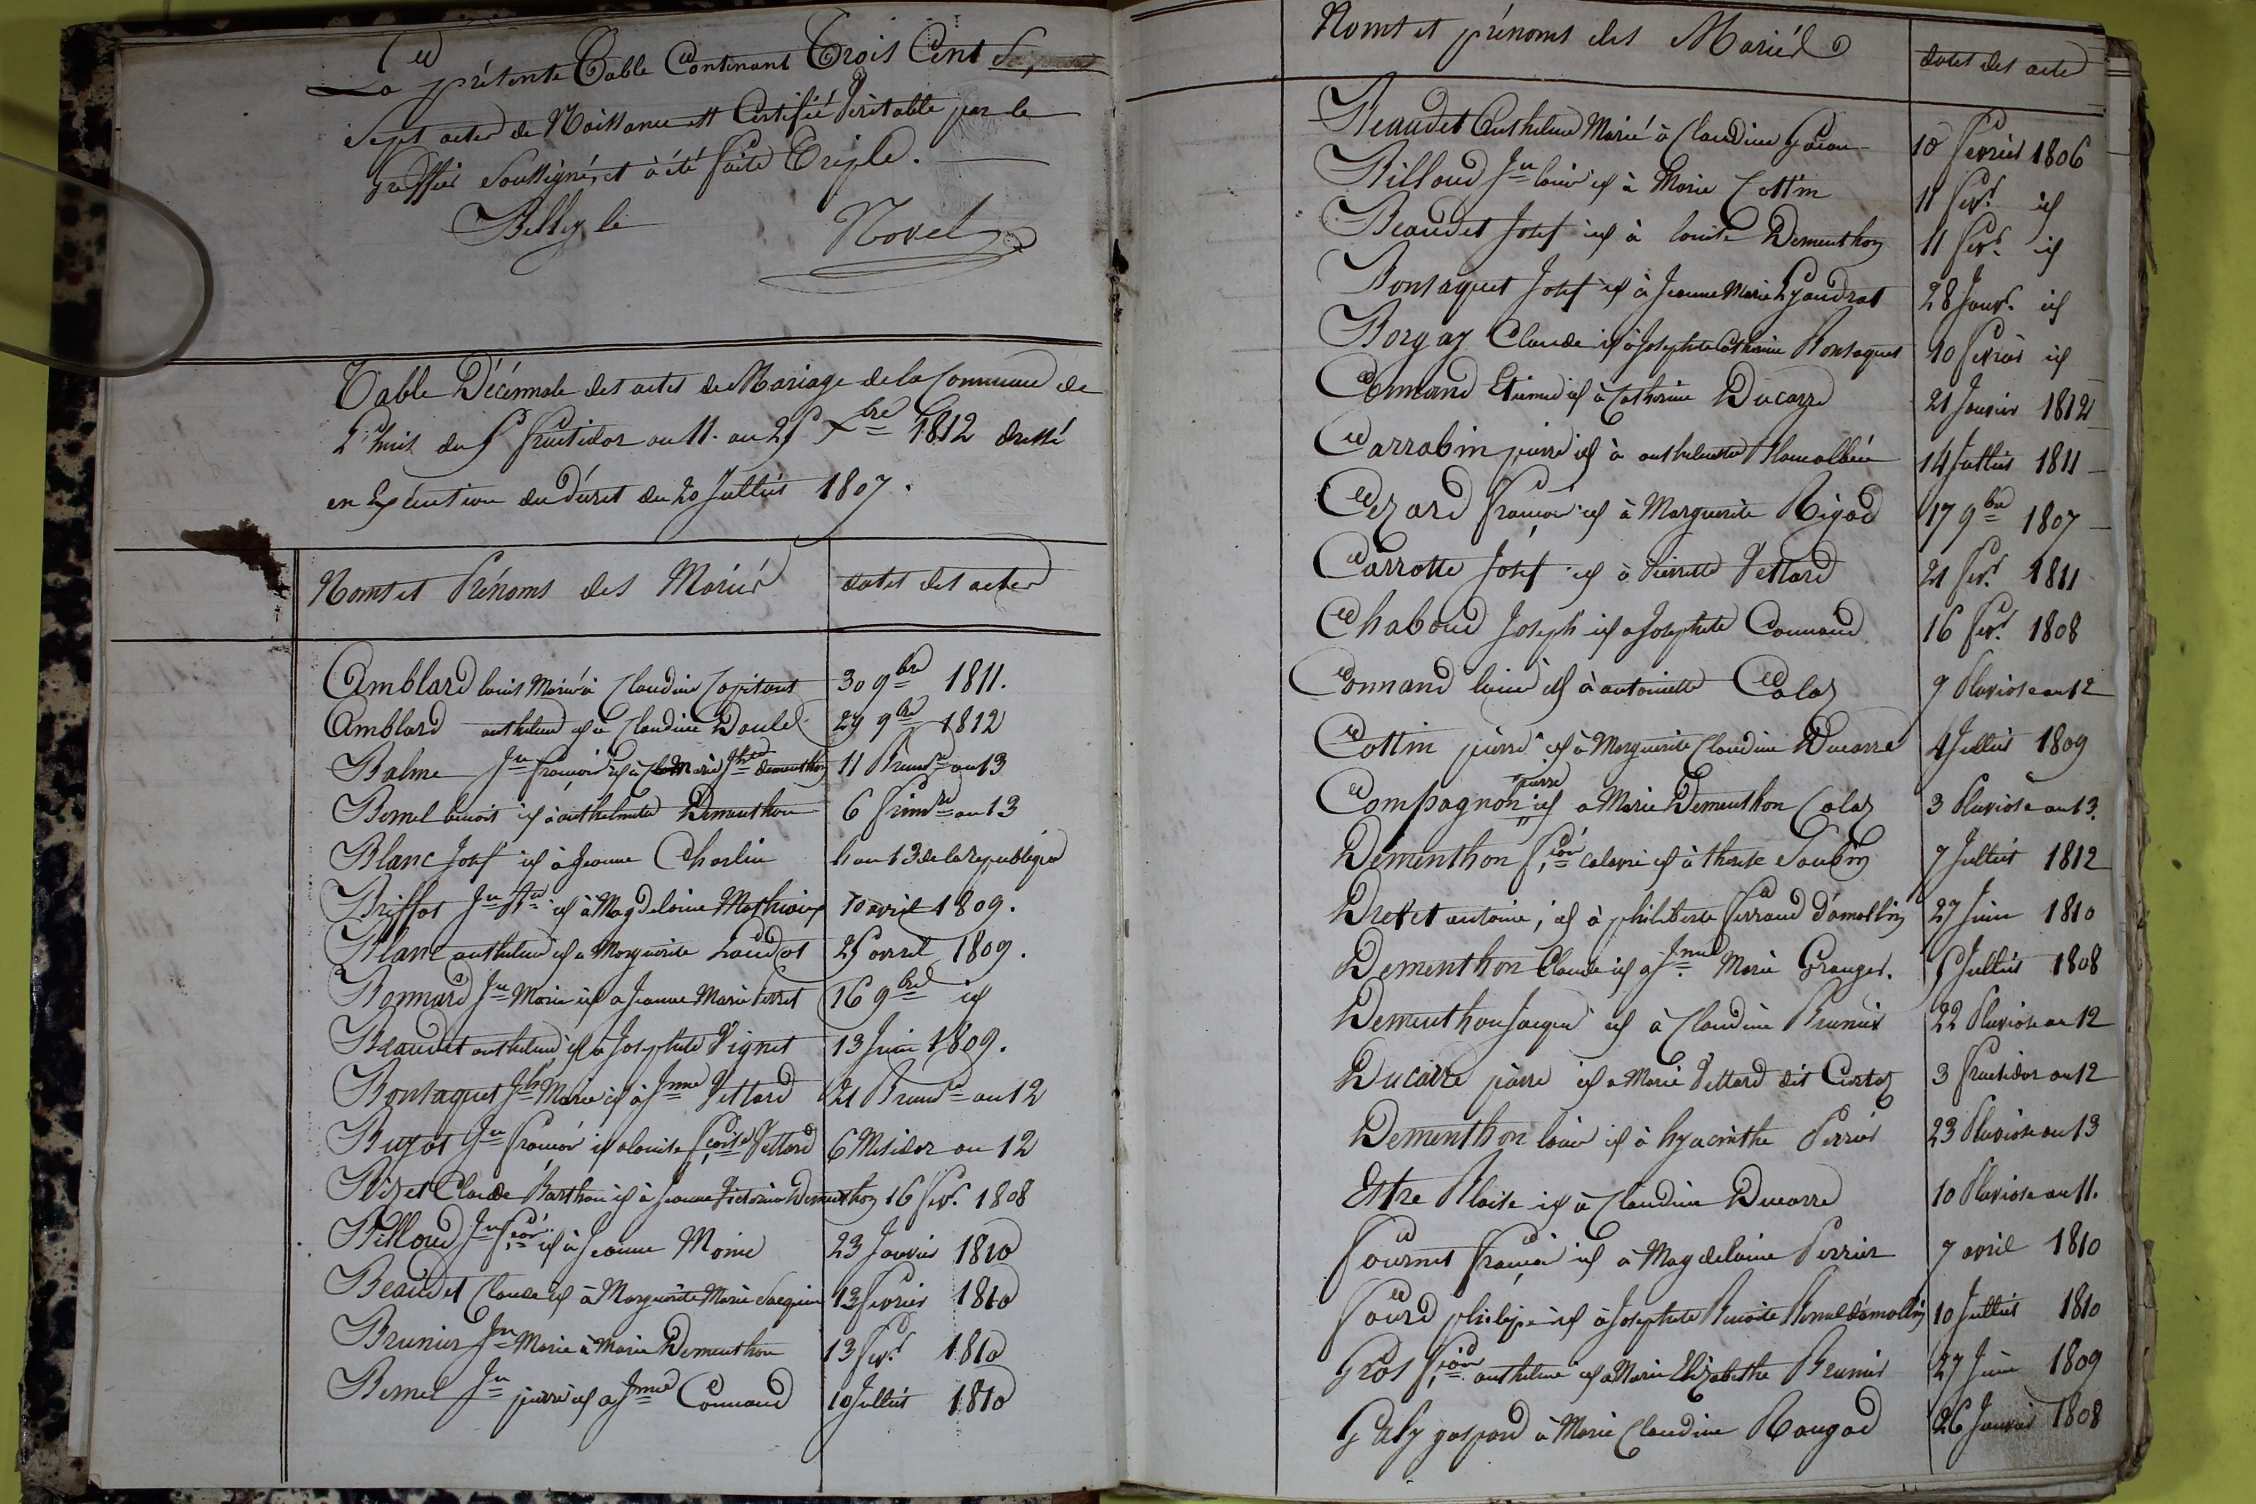 La présente Table Contenant Trois Cent
Sept actes de Naissance est Certifiée Véritable par le
Greffier Soussigné, et à été faite Triple.
Belley le Novel
Table Décennale des actes de Mariage de la Commune de
L'huit du 1er fructidor an 11. au 31 Xbre 1812 dressé
en Exécution du décret du 20 Juillet 1807.
Noms et Prénoms des Mariés dates des actes
Amblard louis Marié à Claudine Capitant 30 9bre 1811.
Amblard anthelme id à Claudine Doules 24 9bre 1812
Balme Jn françois id à Marie Jhte dementhon 11 Brumre an 13
Bornel benoit id à anthelmette Dementhon 6 frimre an 13
Blanc Josef id à Jeanne Charlin h an 13 de la republique
Briffot Jn Bte id à Magdelaine Mathieux 10 avril 1809.
Blanc anthelme id a Marguerite Laudot 25 avril 1809.
Bonnard Jn Marie id a Jeanne Marie Perret 16 9bre id
Beaudet anthelme id à Josephte Vignet 13 Juin 1809.
Bontaquet Jh Marie id à Jnne Vettard 21 Brumre an 12
Buzot Jn françois id a louise fçoise Vettard 6 Messidor an 12
Bizet Claude Barthmi id à Jeanne Victoire Dementhon 16 fevr. 1808
Billoud Jn fçois id à Jeanne Moine 23 Janvier 1810
Beaudet Claude id à Marguerite Marie Jacquin 13 fevrier 1810
Brunier Jn Marie à Marie Dementhon 13 fevr. 1810
Bornel Jn pierre id a Jnne Connand 10 Juillet 1810
Noms et prénoms des Mariés dates des actes
Beaudet Anthelme Marié à Claudine 10 fevrier 1806
Billoud Jn louis id à Marie Cottin 11 fevr. id
Beaudet Josef id à louise Dementhon 11 fevr. id
Bontaquet Josef id à Jeanne Marie Lyaudrat 28 Janvr. id
Borgay Claude id à Josephte Catherine Bontaquet 10 fevrier id
Connand Etienne id à Catherine Ducarre 21 Janvier 1812
Carrabin pierre id à anthelmette 14 Juillet 1811
Cezard françois id à Marguerite Rigod 17 9bre 1807
Carrotte Josef id à Pierrette Vettard 21 fevr. 1811
Chaboud Joseph id a Josephte Connand 16 fevr. 1808
Connand louis id à antoinette Calaz 9 Pluviose an 12
Cottin pierre id à Marguerite Claudine Ducarre 4 Juillet 1809
Compagnon pierre id a Marie Dementhon Calaz 3 Pluviose an 13.
Dementhon fçois calavri id à therese Soubin 7 Juillet 1812
Drevet antoine, id à philiberte ferrand d'amollin 27 Juin 1810
Dementhon Claude id a Jnne Marie Granger. 5 Juillet 1808
Dementhon Jacque id à Claudine Brunier 22 Pluviose an 12
Ducarre pierre id a Marie Vettard dit Curtaz 3 fructidor an 12
Dementhon louis id à hyacinthe Perrier 23 Pluviose an 13
Estre Blaise id à Claudine Ducarre 10 Pluviose an 11.
fournet françois id à Magdelaine Perrier 7 avril 1810
philipe id à Josephte Benoite d'amollin 10 Juillet 1810
Gros fçois anthelme id a Marie Elizabethe Brunier 27 Juin 1809
Guly gaspard à Marie Claudine Rougad 26 Janvier 1808